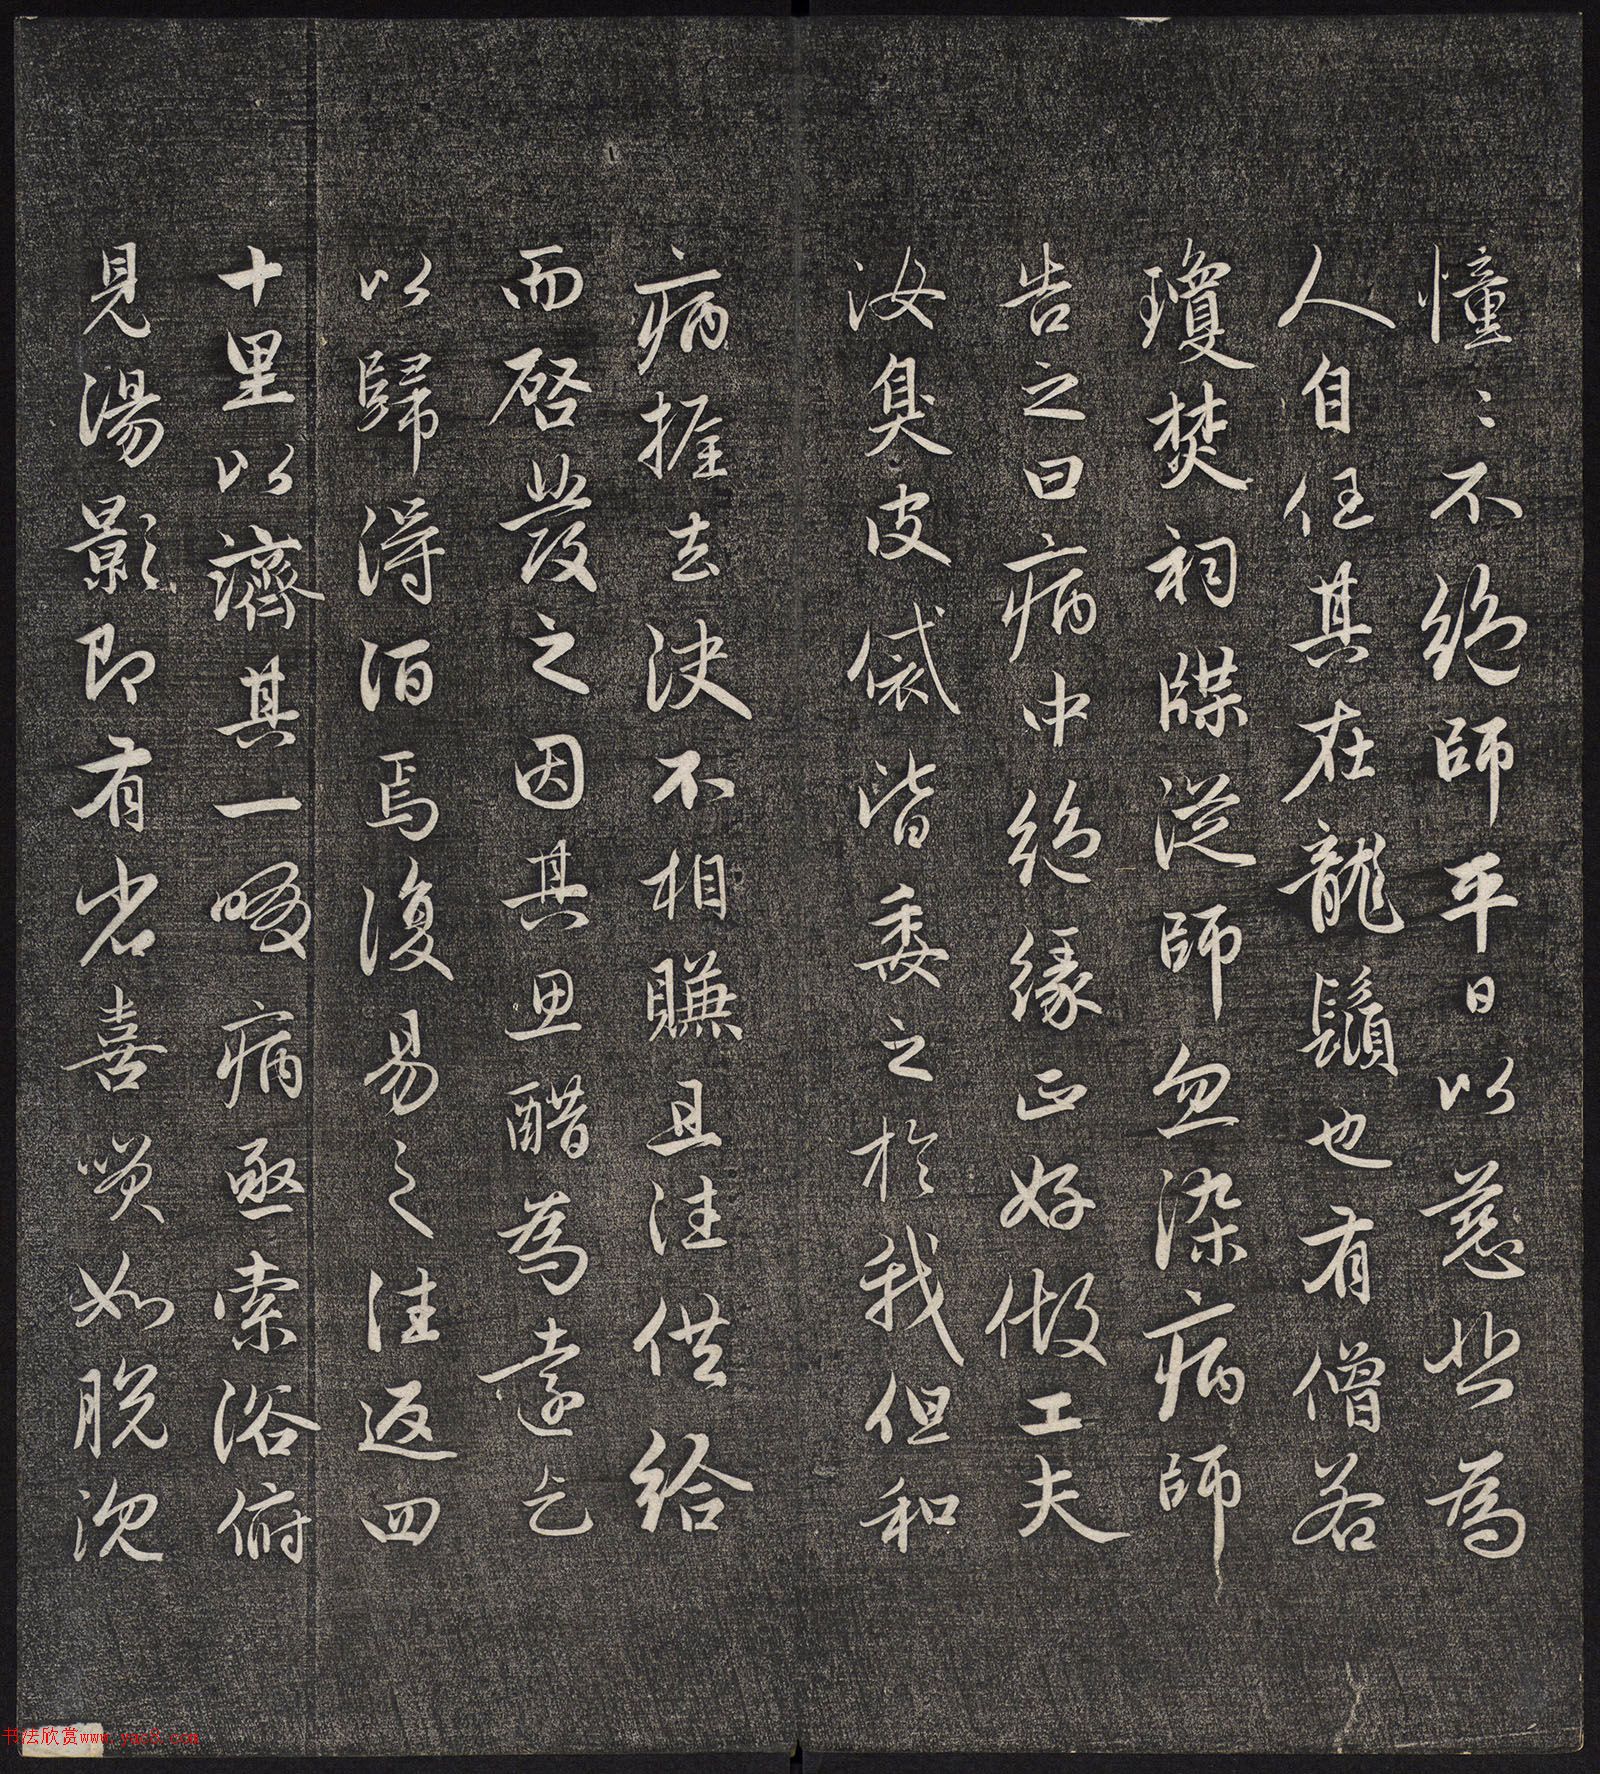 憧〻不絕師平日以慈悲為
人自任其在龍鬚也有僧名
瓊焚祠牒從師忽染病師
告之曰病中絕緣正好做工夫
汝臭皮袋皆委之於我但和
病推去決不相賺且往供給
而啓發之因其思醋為遠乞
以歸得酒焉復易之往返四
十里以濟其一啜病亟索浴俯
見湯影即有省喜笑如脫沉
书法欣赏www.yac8.com